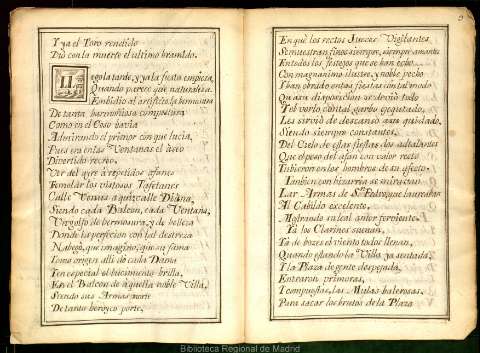 Y ya el Toro rendido
Dió con la muerte el ultimo bramido.
Llego la tarde, y ya la fiesta empieza,
Quando parece que naturaleza
Embidio al artificio la hermosura
De tanta harmoniosa compostura
Como en el Coso havia
Admirando el primor con que lucia,
Pues era en las Ventanas el aseo
Divertido recreo,
Ver del ayre á repetidos
Tremolar los vistosos Tafetanes
Calle Venus a qui; calle Diana,
Siendo cada Balcon, cada Ventana,
Un golfo de hermosura, y de belleza
Donde la perfecion con tal destreza
Nabegó, que imagino, que su fama
Tomo origen alli de cada Dama
Y en especial el lucimiento brilla,
En el Balcon de aquella noble Villa,
Siendo sus Armas parte
De tanto heroyco parte,
9
En que los rectos Jueces Vigilantes
Se muestran finos siempre, siempre amantes
En todos los festejos que se han echo
Con magnanimo ilustre, y noble pecho
Iban obrado en estas fiestas con tal modo
Que a su disposicion se devió todo
Y al verlo con tal garbo egequtado,
Les sirvió de descanso este cuidado.
Siendo siempre constantes,
Del Cielo de estas fiestas dos adtalantes
Que el peso del afan con valor recto
Tubieron en los hombros de su afecto.
Tambien con bizarria se miraban
Las Armas de Sn. Pedro que laureaban
Al Cabildo excelente,
Mostrando su leal amor ferviente.
Ya los Clarines suenan,
Ya de bozes el viento todo llenan,
Quando estando la Villa ya sentada,
Y la Plaza de gente despejada,
Entraron primoras,
Y compuestas, las Mulas balerosas,
Para sacar los brutos de la Plaza
Biblioteca Regional de Madrid